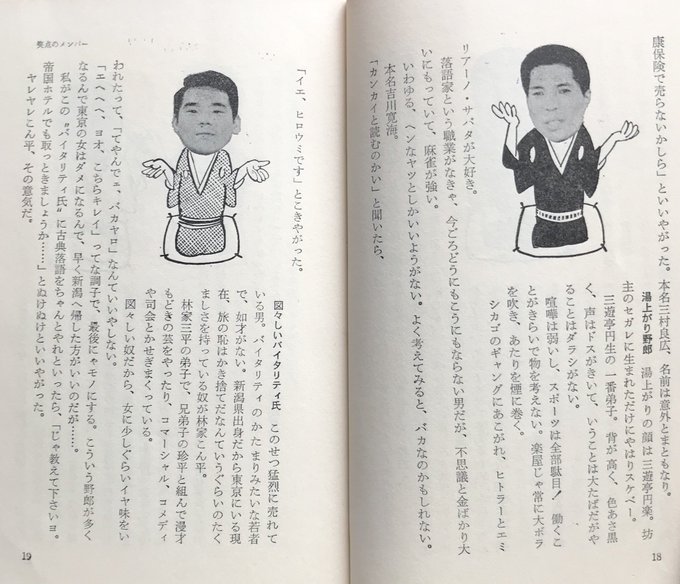 康保険で売らないかしら」といいやがった。本名三村良広、名前は意外とまともなり。
湯上がり野郎　湯上がりの顔は三遊亭円楽。坊
主のセガレに生まれただけにやはりスケベー。
三遊亭円生の一番弟子。背が高く、色あさ黒
く、声はドスがきいて、いうことは大たばだがや
ることはダラシがない。
喧嘩は弱いし、スポーツは全部駄目！　働くこ
とがきらいで物を考えない。楽屋じゃ常に大ボラ
を吹き、あたりを煙に巻く。
シカゴのギャングにあこがれ、ヒトラーとエミ
リアーノ・サパタが大好き。
落語家という職業がなきゃ、今ごろどうにもこうにもならない男だが、不思議と金ばかり大
いにもっていて、麻雀が強い。
いわゆる、ヘンなヤツとしかいいようがない。よく考えてみると、バカなのかもしれない。
本名吉川寛海。
「カンカイと読むのかい」と聞いたら、
18
笑点のメンバー
「イエ、ヒロウミです」とこきやがった。
図々しいバイタリティ氏　このせつ猛烈に売れて
いる男。バイタリティのかたまりみたいな若者
で、如才がない。新潟県出身だから東京にいる現
在、旅の恥はかき捨てだなんていうぐらいのたく
ましさを持っている奴が林家こん平。
林家三平の弟子で、兄弟子の珍平と組んで漫才
もどきの芸をやったり、コマーシャル、コメディ
や司会とかせぎまくっている。
図々しい奴だから、女に少しぐらいイヤ味をい
われたって、「てやんでェ、バカヤロ」なんていいやしない。
「エヘヘヘ、ヨオ、こちらキレイ」ってな調子で、最後にゃモノにする。こういう野郎が多く
なるんで東京の女はダメになるんで、早く新潟へ帰した方がいいのだが……。
私がこの〝バイタリティ氏〟に古典落語をちゃんとやれといったら、「じゃ教えて下さいヨ。
帝国ホテルでも取っときましょうか……」とぬけぬけといいやがった。
ヤレヤレこん平、その意気だ。
19